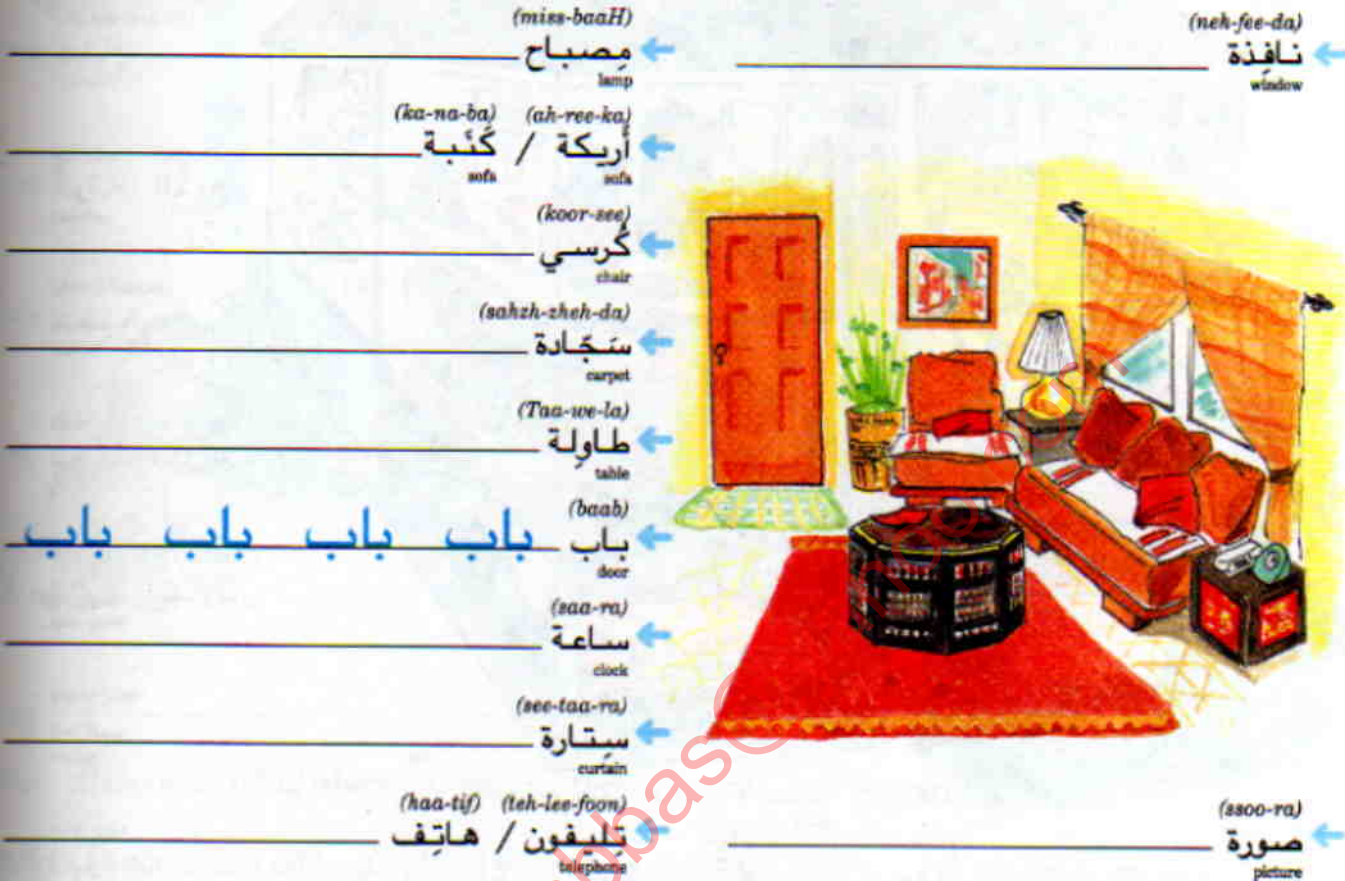 (neh-fee-da)
نافِذة
window
(miss-baaH)
مِصباح
lamp
(ka-na-ba) (ah-ree-ka)
أَريكة / كَنَبة
sofa sofa
(koor-see)
كُرسي
chair
(sahzh-zheh-da)
سَجّادة
carpet
(Taa-we-la)
طاوِلة
table
(baab)
باب باب باب باب باب
door
(saa-ra)
ساعة
clock
(see-taa-ra)
سِتارة
curtain
(haa-tif) (teh-lee-foon)
تِليفون / هاتِف
telephone
(ssoo-ra)
صورة
picture